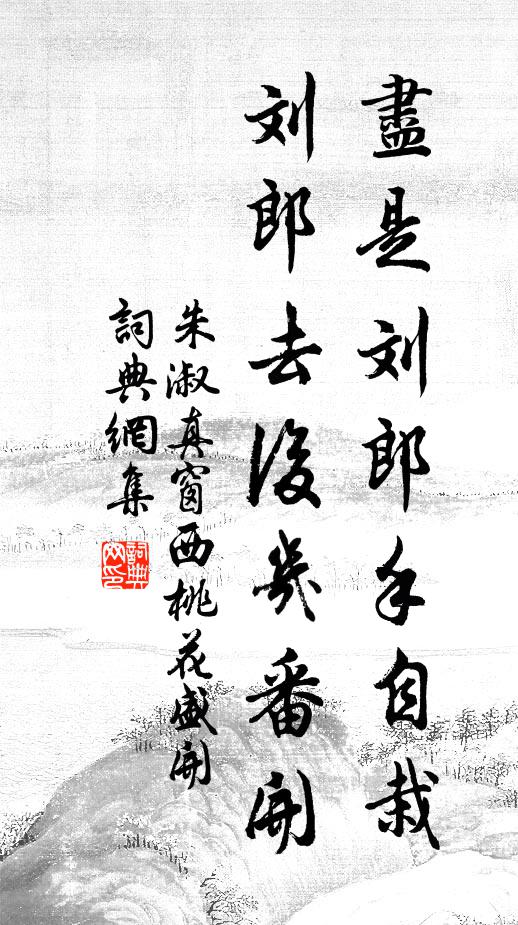 盡是刘郎手自栽
刘郎去後幾番開
朱淑真窗西桃花盛開
詞典網集
詞典網印